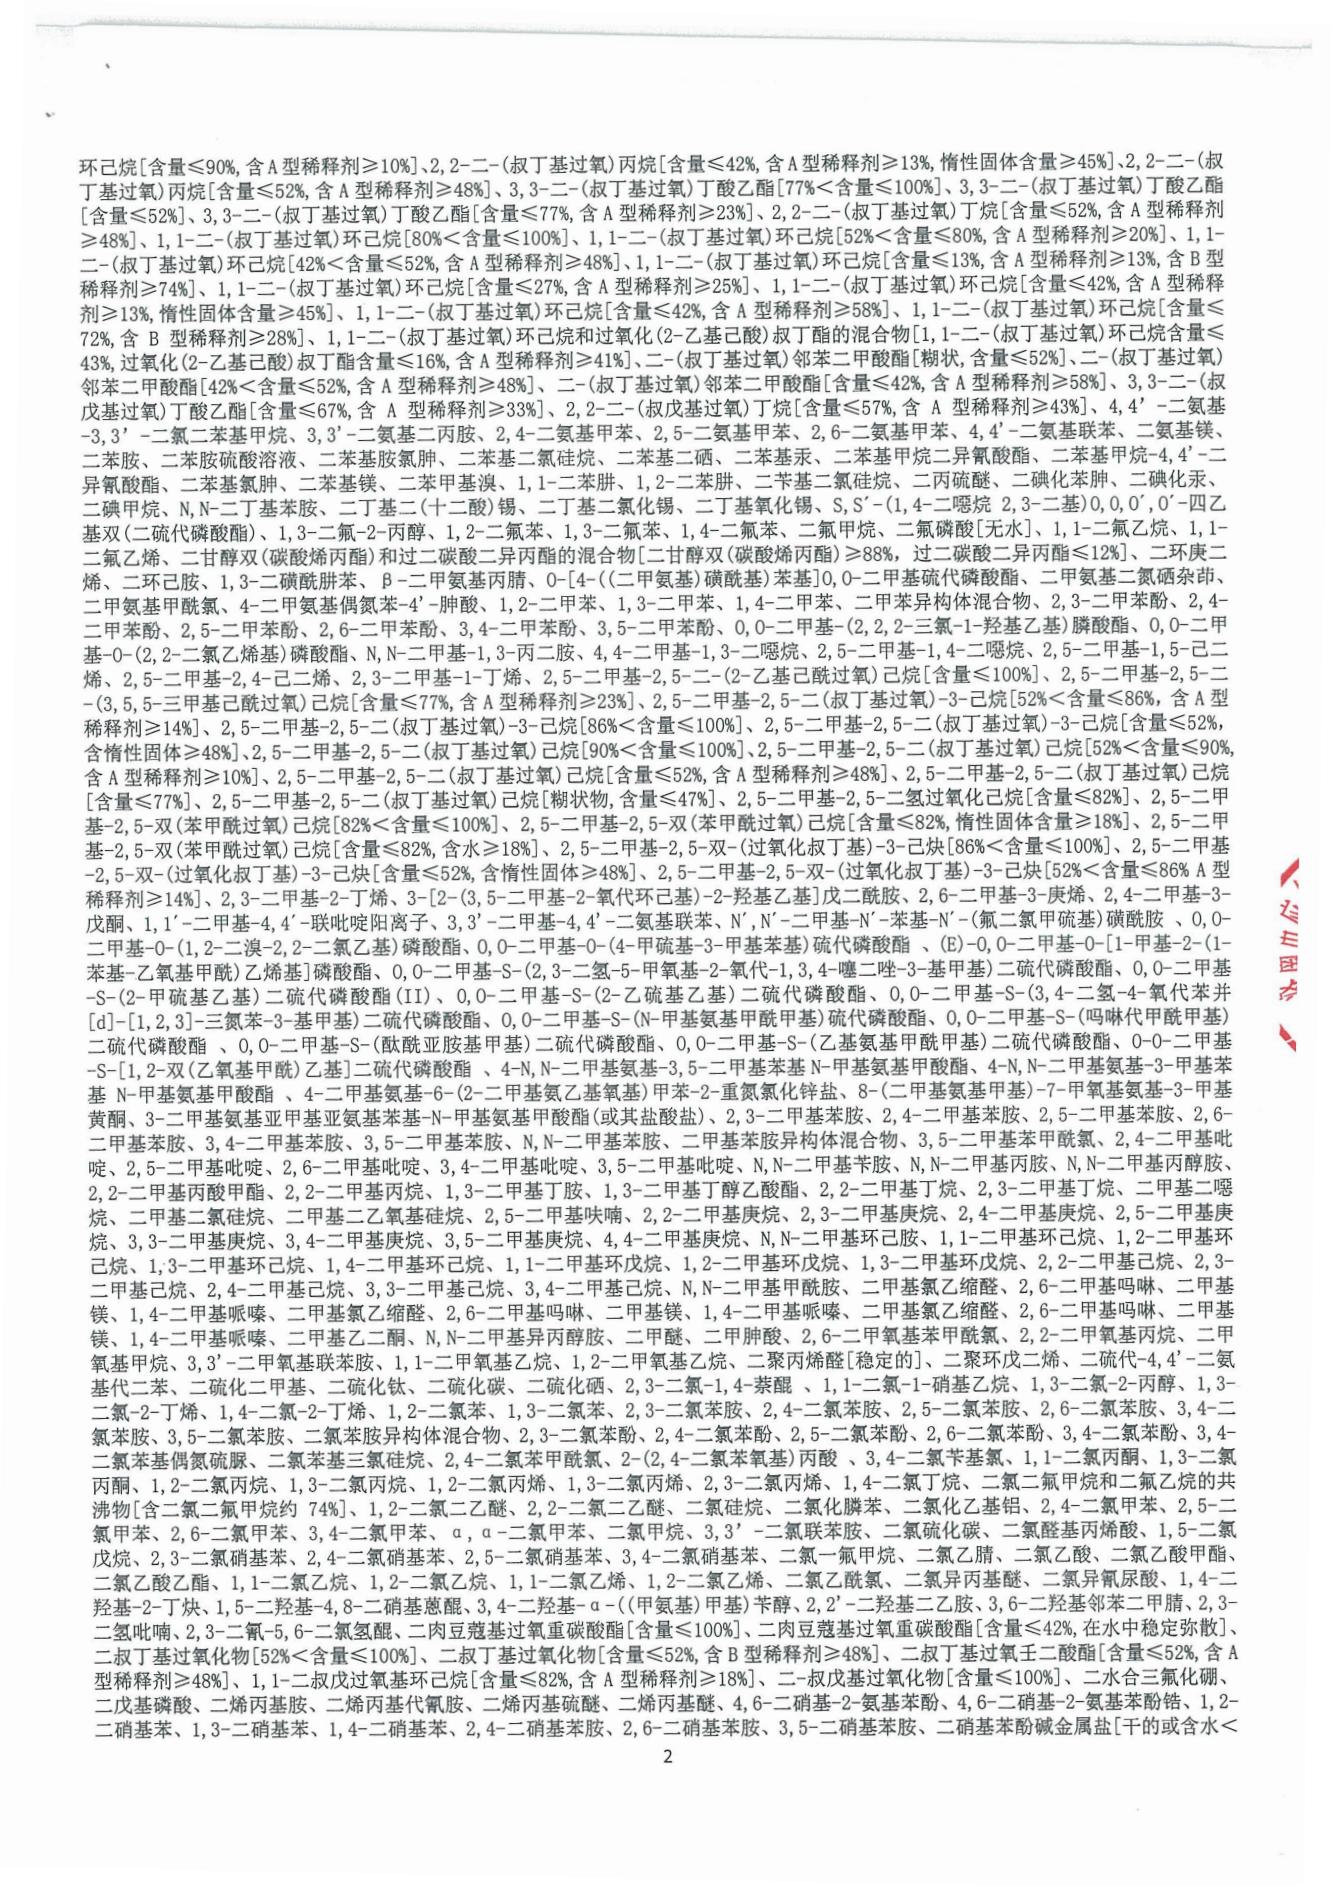 环己烷[含量≤90%,含A型稀释剂≥10%]、2,2-二-(叔丁基过氧)丙烷[含量≤42%,含A型稀释剂≥13%,惰性固体含量≥45%]、2,2-二-(叔
丁基过氧)丙烷[含量≤52%,含A型稀释剂≥48%]、3,3-二-(叔丁基过氧)丁酸乙酯[77%<含量≤100%]、3,3-二-(叔丁基过氧)丁酸乙酯
[含量≤52%]、3,3-二-(叔丁基过氧)丁酸乙酯[含量≤77%,含A型稀释剂≥23%]、2,2-二-(叔丁基过氧)丁烷[含量≤52%,含A型稀释剂
≥48%]、1,1-二-(叔丁基过氧)环己烷[80%<含量≤100%]、1,1-二-(叔丁基过氧)环己烷[52%<含量≤80%,含A型稀释剂≥20%]、1,1-
二-(叔丁基过氧)环己烷[42%<含量≤52%,含A型稀释剂≥48%]、1,1-二-(叔丁基过氧)环己烷[含量≤13%,含A型稀释剂≥13%,含B型
稀释剂≥74%]、1,1-二-(叔丁基过氧)环己烷[含量≤27%,含A型稀释剂≥25%]、1,1-二-(叔丁基过氧)环己烷[含量≤42%,含A型稀释
剂≥13%,惰性固体含量≥45%]、1,1-二-(叔丁基过氧)环己烷[含量≤42%,含A型稀释剂≥58%]、1,1-二-(叔丁基过氧)环己烷[含量≤
72%,含 B 型稀释剂≥28%]、1,1-二-(叔丁基过氧)环己烷和过氧化(2-乙基己酸)叔丁酯的混合物[1,1-二-(叔丁基过氧)环己烷含量≤
43%,过氧化(2-乙基己酸)叔丁酯含量≤16%,含A型稀释剂≥41%]、二-(叔丁基过氧)邻苯二甲酸酯[糊状,含量≤52%]、二-(叔丁基过氧)
邻苯二甲酸酯[42%<含量≤52%,含A型稀释剂≥48%]、二-(叔丁基过氧)邻苯二甲酸酯[含量≤42%,含A型稀释剂≥58%]、3,3-二-(叔
戊基过氧)丁酸乙酯[含量≤67%,含 A 型稀释剂≥33%]、2,2-二-(叔戊基过氧)丁烷[含量≤57%,含 A 型稀释剂≥43%]、4,4′-二氨基
-3,3′-二氯二苯基甲烷、3,3'-二氨基二丙胺、2,4-二氨基甲苯、2,5-二氨基甲苯、2,6-二氨基甲苯、4,4'-二氨基联苯、二氨基镁、
二苯胺、二苯胺硫酸溶液、二苯基胺氯胂、二苯基二氯硅烷、二苯基二硒、二苯基汞、二苯基甲烷二异氰酸酯、二苯基甲烷-4,4'-二
异氰酸酯、二苯基氯胂、二苯基镁、二苯甲基溴、1,1-二苯肼、1,2-二苯肼、二苄基二氯硅烷、二丙硫醚、二碘化苯胂、二碘化汞、
二碘甲烷、N,N-二丁基苯胺、二丁基二(十二酸)锡、二丁基二氯化锡、二丁基氧化锡、S,S′-(1,4-二噁烷 2,3-二基)O,O,O′,O′-四乙
基双(二硫代磷酸酯)、1,3-二氟-2-丙醇、1,2-二氟苯、1,3-二氟苯、1,4-二氟苯、二氟甲烷、二氟磷酸[无水]、1,1-二氟乙烷、1,1-
二氟乙烯、二甘醇双(碳酸烯丙酯)和过二碳酸二异丙酯的混合物[二甘醇双(碳酸烯丙酯)≥88%，过二碳酸二异丙酯≤12%]、二环庚二
烯、二环己胺、1,3-二磺酰肼苯、β-二甲氨基丙腈、O-[4-((二甲氨基)磺酰基)苯基]O,O-二甲基硫代磷酸酯、二甲氨基二氮硒杂茚、
二甲氨基甲酰氯、4-二甲氨基偶氮苯-4'-胂酸、1,2-二甲苯、1,3-二甲苯、1,4-二甲苯、二甲苯异构体混合物、2,3-二甲苯酚、2,4-
二甲苯酚、2,5-二甲苯酚、2,6-二甲苯酚、3,4-二甲苯酚、3,5-二甲苯酚、O,O-二甲基-(2,2,2-三氯-1-羟基乙基)膦酸酯、O,O-二甲
基-O-(2,2-二氯乙烯基)磷酸酯、N,N-二甲基-1,3-丙二胺、4,4-二甲基-1,3-二噁烷、2,5-二甲基-1,4-二噁烷、2,5-二甲基-1,5-己二
烯、2,5-二甲基-2,4-己二烯、2,3-二甲基-1-丁烯、2,5-二甲基-2,5-二-(2-乙基己酰过氧)己烷[含量≤100%]、2,5-二甲基-2,5-二
-(3,5,5-三甲基己酰过氧)己烷[含量≤77%,含A型稀释剂≥23%]、2,5-二甲基-2,5-二(叔丁基过氧)-3-己烷[52%<含量≤86%，含A型
稀释剂≥14%]、2,5-二甲基-2,5-二(叔丁基过氧)-3-己烷[86%<含量≤100%]、2,5-二甲基-2,5-二(叔丁基过氧)-3-己烷[含量≤52%，
含惰性固体≥48%]、2,5-二甲基-2,5-二(叔丁基过氧)己烷[90%<含量≤100%]、2,5-二甲基-2,5-二(叔丁基过氧)己烷[52%<含量≤90%,
含A型稀释剂≥10%]、2,5-二甲基-2,5-二(叔丁基过氧)己烷[含量≤52%,含A型稀释剂≥48%]、2,5-二甲基-2,5-二(叔丁基过氧)己烷
[含量≤77%]、2,5-二甲基-2,5-二(叔丁基过氧)己烷[糊状物,含量≤47%]、2,5-二甲基-2,5-二氢过氧化己烷[含量≤82%]、2,5-二甲
基-2,5-双(苯甲酰过氧)己烷[82%<含量≤100%]、2,5-二甲基-2,5-双(苯甲酰过氧)己烷[含量≤82%,惰性固体含量≥18%]、2,5-二甲
基-2,5-双(苯甲酰过氧)己烷[含量≤82%,含水≥18%]、2,5-二甲基-2,5-双-(过氧化叔丁基)-3-己炔[86%<含量≤100%]、2,5-二甲基
-2,5-双-(过氧化叔丁基)-3-己炔[含量≤52%,含惰性固体≥48%]、2,5-二甲基-2,5-双-(过氧化叔丁基)-3-己炔[52%<含量≤86%A型
稀释剂≥14%]、2,3-二甲基-2-丁烯、3-[2-(3,5-二甲基-2-氧代环己基)-2-羟基乙基]戊二酰胺、2,6-二甲基-3-庚烯、2,4-二甲基-3-
戊酮、1,1′-二甲基-4,4′-联吡啶阳离子、3,3'-二甲基-4,4'-二氨基联苯、N′,N′-二甲基-N′-苯基-N′-(氟二氯甲硫基)磺酰胺 、O,O-
二甲基-O-(1,2-二溴-2,2-二氯乙基)磷酸酯、O,O-二甲基-O-(4-甲硫基-3-甲基苯基)硫代磷酸酯 、(E)-O,O-二甲基-O-[1-甲基-2-(1-
苯基-乙氧基甲酰)乙烯基]磷酸酯、O,O-二甲基-S-(2,3-二氢-5-甲氧基-2-氧代-1,3,4-噻二唑-3-基甲基)二硫代磷酸酯、O,O-二甲基
-S-(2-甲硫基乙基)二硫代磷酸酯(II)、O,O-二甲基-S-(2-乙硫基乙基)二硫代磷酸酯、O,O-二甲基-S-(3,4-二氢-4-氧代苯并
[d]-[1,2,3]-三氮苯-3-基甲基)二硫代磷酸酯、O,O-二甲基-S-(N-甲基氨基甲酰甲基)硫代磷酸酯、O,O-二甲基-S-(吗啉代甲酰甲基)
二硫代磷酸酯 、O,O-二甲基-S-(酞酰亚胺基甲基)二硫代磷酸酯、O,O-二甲基-S-(乙基氨基甲酰甲基)二硫代磷酸酯、O-O-二甲基
-S-[1,2-双(乙氧基甲酰)乙基]二硫代磷酸酯 、4-N,N-二甲基氨基-3,5-二甲基苯基N-甲基氨基甲酸酯、4-N,N-二甲基氨基-3-甲基苯
基 N-甲基氨基甲酸酯 、4-二甲基氨基-6-(2-二甲基氨乙基氧基)甲苯-2-重氮氯化锌盐、8-(二甲基氨基甲基)-7-甲氧基氨基-3-甲基
黄酮、3-二甲基氨基亚甲基亚氨基苯基-N-甲基氨基甲酸酯(或其盐酸盐)、2,3-二甲基苯胺、2,4-二甲基苯胺、2,5-二甲基苯胺、2,6-
二甲基苯胺、3,4-二甲基苯胺、3,5-二甲基苯胺、N,N-二甲基苯胺、二甲基苯胺异构体混合物、3,5-二甲基苯甲酰氯、2,4-二甲基吡
啶、2,5-二甲基吡啶、2,6-二甲基吡啶、3,4-二甲基吡啶、3,5-二甲基吡啶、N,N-二甲基苄胺、N,N-二甲基丙胺、N,N-二甲基丙醇胺、
2,2-二甲基丙酸甲酯、2,2-二甲基丙烷、1,3-二甲基丁胺、1,3-二甲基丁醇乙酸酯、2,2-二甲基丁烷、2,3-二甲基丁烷、二甲基二噁
烷、二甲基二氯硅烷、二甲基二乙氧基硅烷、2,5-二甲基呋喃、2,2-二甲基庚烷、2,3-二甲基庚烷、2,4-二甲基庚烷、2,5-二甲基庚
烷、3,3-二甲基庚烷、3,4-二甲基庚烷、3,5-二甲基庚烷、4,4-二甲基庚烷、N,N-二甲基环己胺、1,1-二甲基环己烷、1,2-二甲基环
己烷、1,3-二甲基环己烷、1,4-二甲基环己烷、1,1-二甲基环戊烷、1,2-二甲基环戊烷、1,3-二甲基环戊烷、2,2-二甲基己烷、2,3-
二甲基己烷、2,4-二甲基己烷、3,3-二甲基己烷、3,4-二甲基己烷、N,N-二甲基甲酰胺、二甲基氯乙缩醛、2,6-二甲基吗啉、二甲基
镁、1,4-二甲基哌嗪、二甲基氯乙缩醛、2,6-二甲基吗啉、二甲基镁、1,4-二甲基哌嗪、二甲基氯乙缩醛、2,6-二甲基吗啉、二甲基
镁、1,4-二甲基哌嗪、二甲基乙二酮、N,N-二甲基异丙醇胺、二甲醚、二甲胂酸、2,6-二甲氧基苯甲酰氯、2,2-二甲氧基丙烷、二甲
氧基甲烷、3,3'-二甲氧基联苯胺、1,1-二甲氧基乙烷、1,2-二甲氧基乙烷、二聚丙烯醛[稳定的]、二聚环戊二烯、二硫代-4,4'-二氨
基代二苯、二硫化二甲基、二硫化钛、二硫化碳、二硫化硒、2,3-二氯-1,4-萘醌 、1,1-二氯-1-硝基乙烷、1,3-二氯-2-丙醇、1,3-
二氯-2-丁烯、1,4-二氯-2-丁烯、1,2-二氯苯、1,3-二氯苯、2,3-二氯苯胺、2,4-二氯苯胺、2,5-二氯苯胺、2,6-二氯苯胺、3,4-二
氯苯胺、3,5-二氯苯胺、二氯苯胺异构体混合物、2,3-二氯苯酚、2,4-二氯苯酚、2,5-二氯苯酚、2,6-二氯苯酚、3,4-二氯苯酚、3,4-
二氯苯基偶氮硫脲、二氯苯基三氯硅烷、2,4-二氯苯甲酰氯、2-(2,4-二氯苯氧基)丙酸 、3,4-二氯苄基氯、1,1-二氯丙酮、1,3-二氯
丙酮、1,2-二氯丙烷、1,3-二氯丙烷、1,2-二氯丙烯、1,3-二氯丙烯、2,3-二氯丙烯、1,4-二氯丁烷、二氯二氟甲烷和二氟乙烷的共
沸物[含二氯二氟甲烷约 74%]、1,2-二氯二乙醚、2,2-二氯二乙醚、二氯硅烷、二氯化膦苯、二氯化乙基铝、2,4-二氯甲苯、2,5-二
氯甲苯、2,6-二氯甲苯、3,4-二氯甲苯、α,α-二氯甲苯、二氯甲烷、3,3′-二氯联苯胺、二氯硫化碳、二氯醛基丙烯酸、1,5-二氯
戊烷、2,3-二氯硝基苯、2,4-二氯硝基苯、2,5-二氯硝基苯、3,4-二氯硝基苯、二氯一氟甲烷、二氯乙腈、二氯乙酸、二氯乙酸甲酯、
二氯乙酸乙酯、1,1-二氯乙烷、1,2-二氯乙烷、1,1-二氯乙烯、1,2-二氯乙烯、二氯乙酰氯、二氯异丙基醚、二氯异氰尿酸、1,4-二
羟基-2-丁炔、1,5-二羟基-4,8-二硝基蒽醌、3,4-二羟基-α-((甲氨基)甲基)苄醇、2,2'-二羟基二乙胺、3,6-二羟基邻苯二甲腈、2,3-
二氢吡喃、2,3-二氰-5,6-二氯氢醌、二肉豆蔻基过氧重碳酸酯[含量≤100%]、二肉豆蔻基过氧重碳酸酯[含量≤42%,在水中稳定弥散]、
二叔丁基过氧化物[52%<含量≤100%]、二叔丁基过氧化物[含量≤52%,含B型稀释剂≥48%]、二叔丁基过氧壬二酸酯[含量≤52%,含A
型稀释剂≥48%]、1,1-二叔戊过氧基环己烷[含量≤82%,含A型稀释剂≥18%]、二-叔戊基过氧化物[含量≤100%]、二水合三氟化硼、
二戊基磷酸、二烯丙基胺、二烯丙基代氰胺、二烯丙基硫醚、二烯丙基醚、4,6-二硝基-2-氨基苯酚、4,6-二硝基-2-氨基苯酚锆、1,2-
二硝基苯、1,3-二硝基苯、1,4-二硝基苯、2,4-二硝基苯胺、2,6-二硝基苯胺、3,5-二硝基苯胺、二硝基苯酚碱金属盐[干的或含水<
2